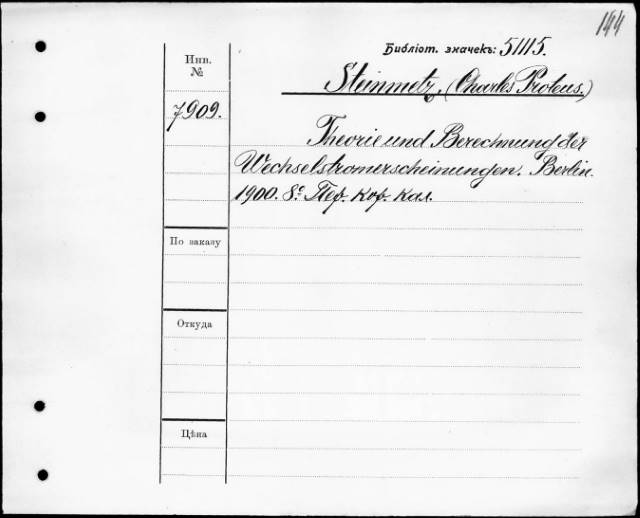 144
Библіот. значекъ: 51115.
Инв.
№
Steinmetz, (Charles Proteus.)
7909.
Theorie und Berechnung der
Wechselstromerscheinungen. Berlin.
1900. 8º Пер. Кор. Кал.
По заказу
Откуда
Цѣна